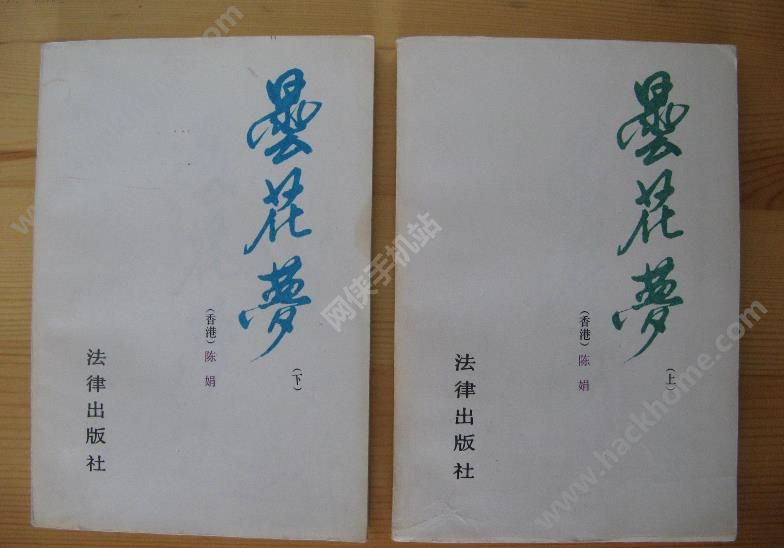 曇花夢
（下）
（香港）陈 娟
法律出版社
曇花夢
（上）
（香港）陈 娟
法律出版社
网侠手机站
www.hackhome.com